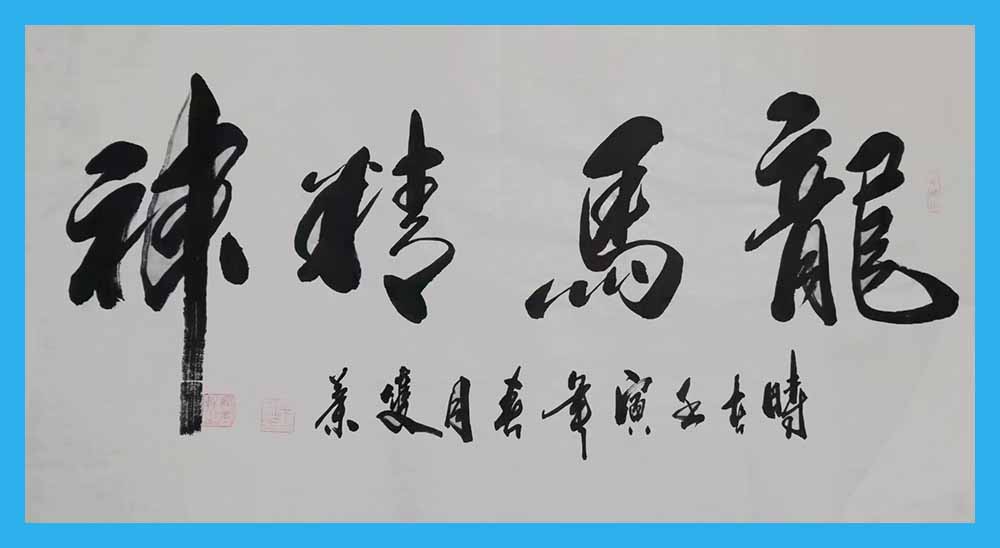 龍馬精神
時在壬寅年春月雙